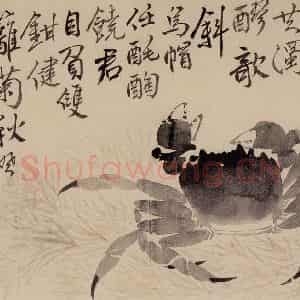 共濁
醪欹
斜
烏帽
任酕醄
饒君
自負雙
鉗健
籬菊秋
Shufawang.cn